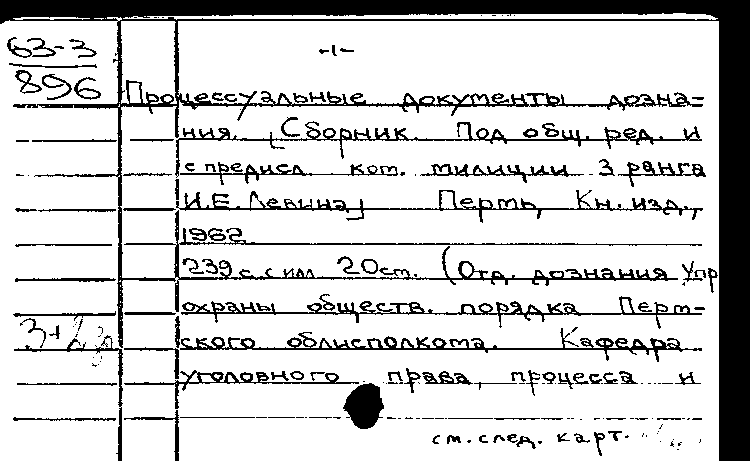 63-3
896
-1-
Процессуальные документы дозна-
ния. [Сборник. Под общ. ред. и
с предисл. ком. милиции 3 ранга
И.Е. Левина] Пермь, Кн. изд.,
1962.
239 с. с илл. 20 см. (Отд. дознания Упр
охраны обществ. порядка Перм-
3+2
ского облисполкома. Кафедра
уголовного права, процесса и
см. след. карт.